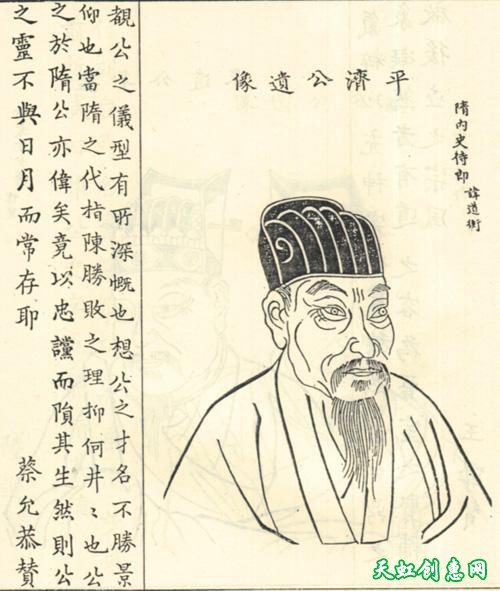 平濟公遺像
隋內史侍郎 諱道衡
覩公之儀型有所深慨也想公之才名不勝景
仰也當隋之代指陳勝敗之理抑何井〻也公
之於隋公亦偉矣竟以忠讜而隕其生然則公
之靈不與日月而常存耶 蔡允恭贊
天虹创意网